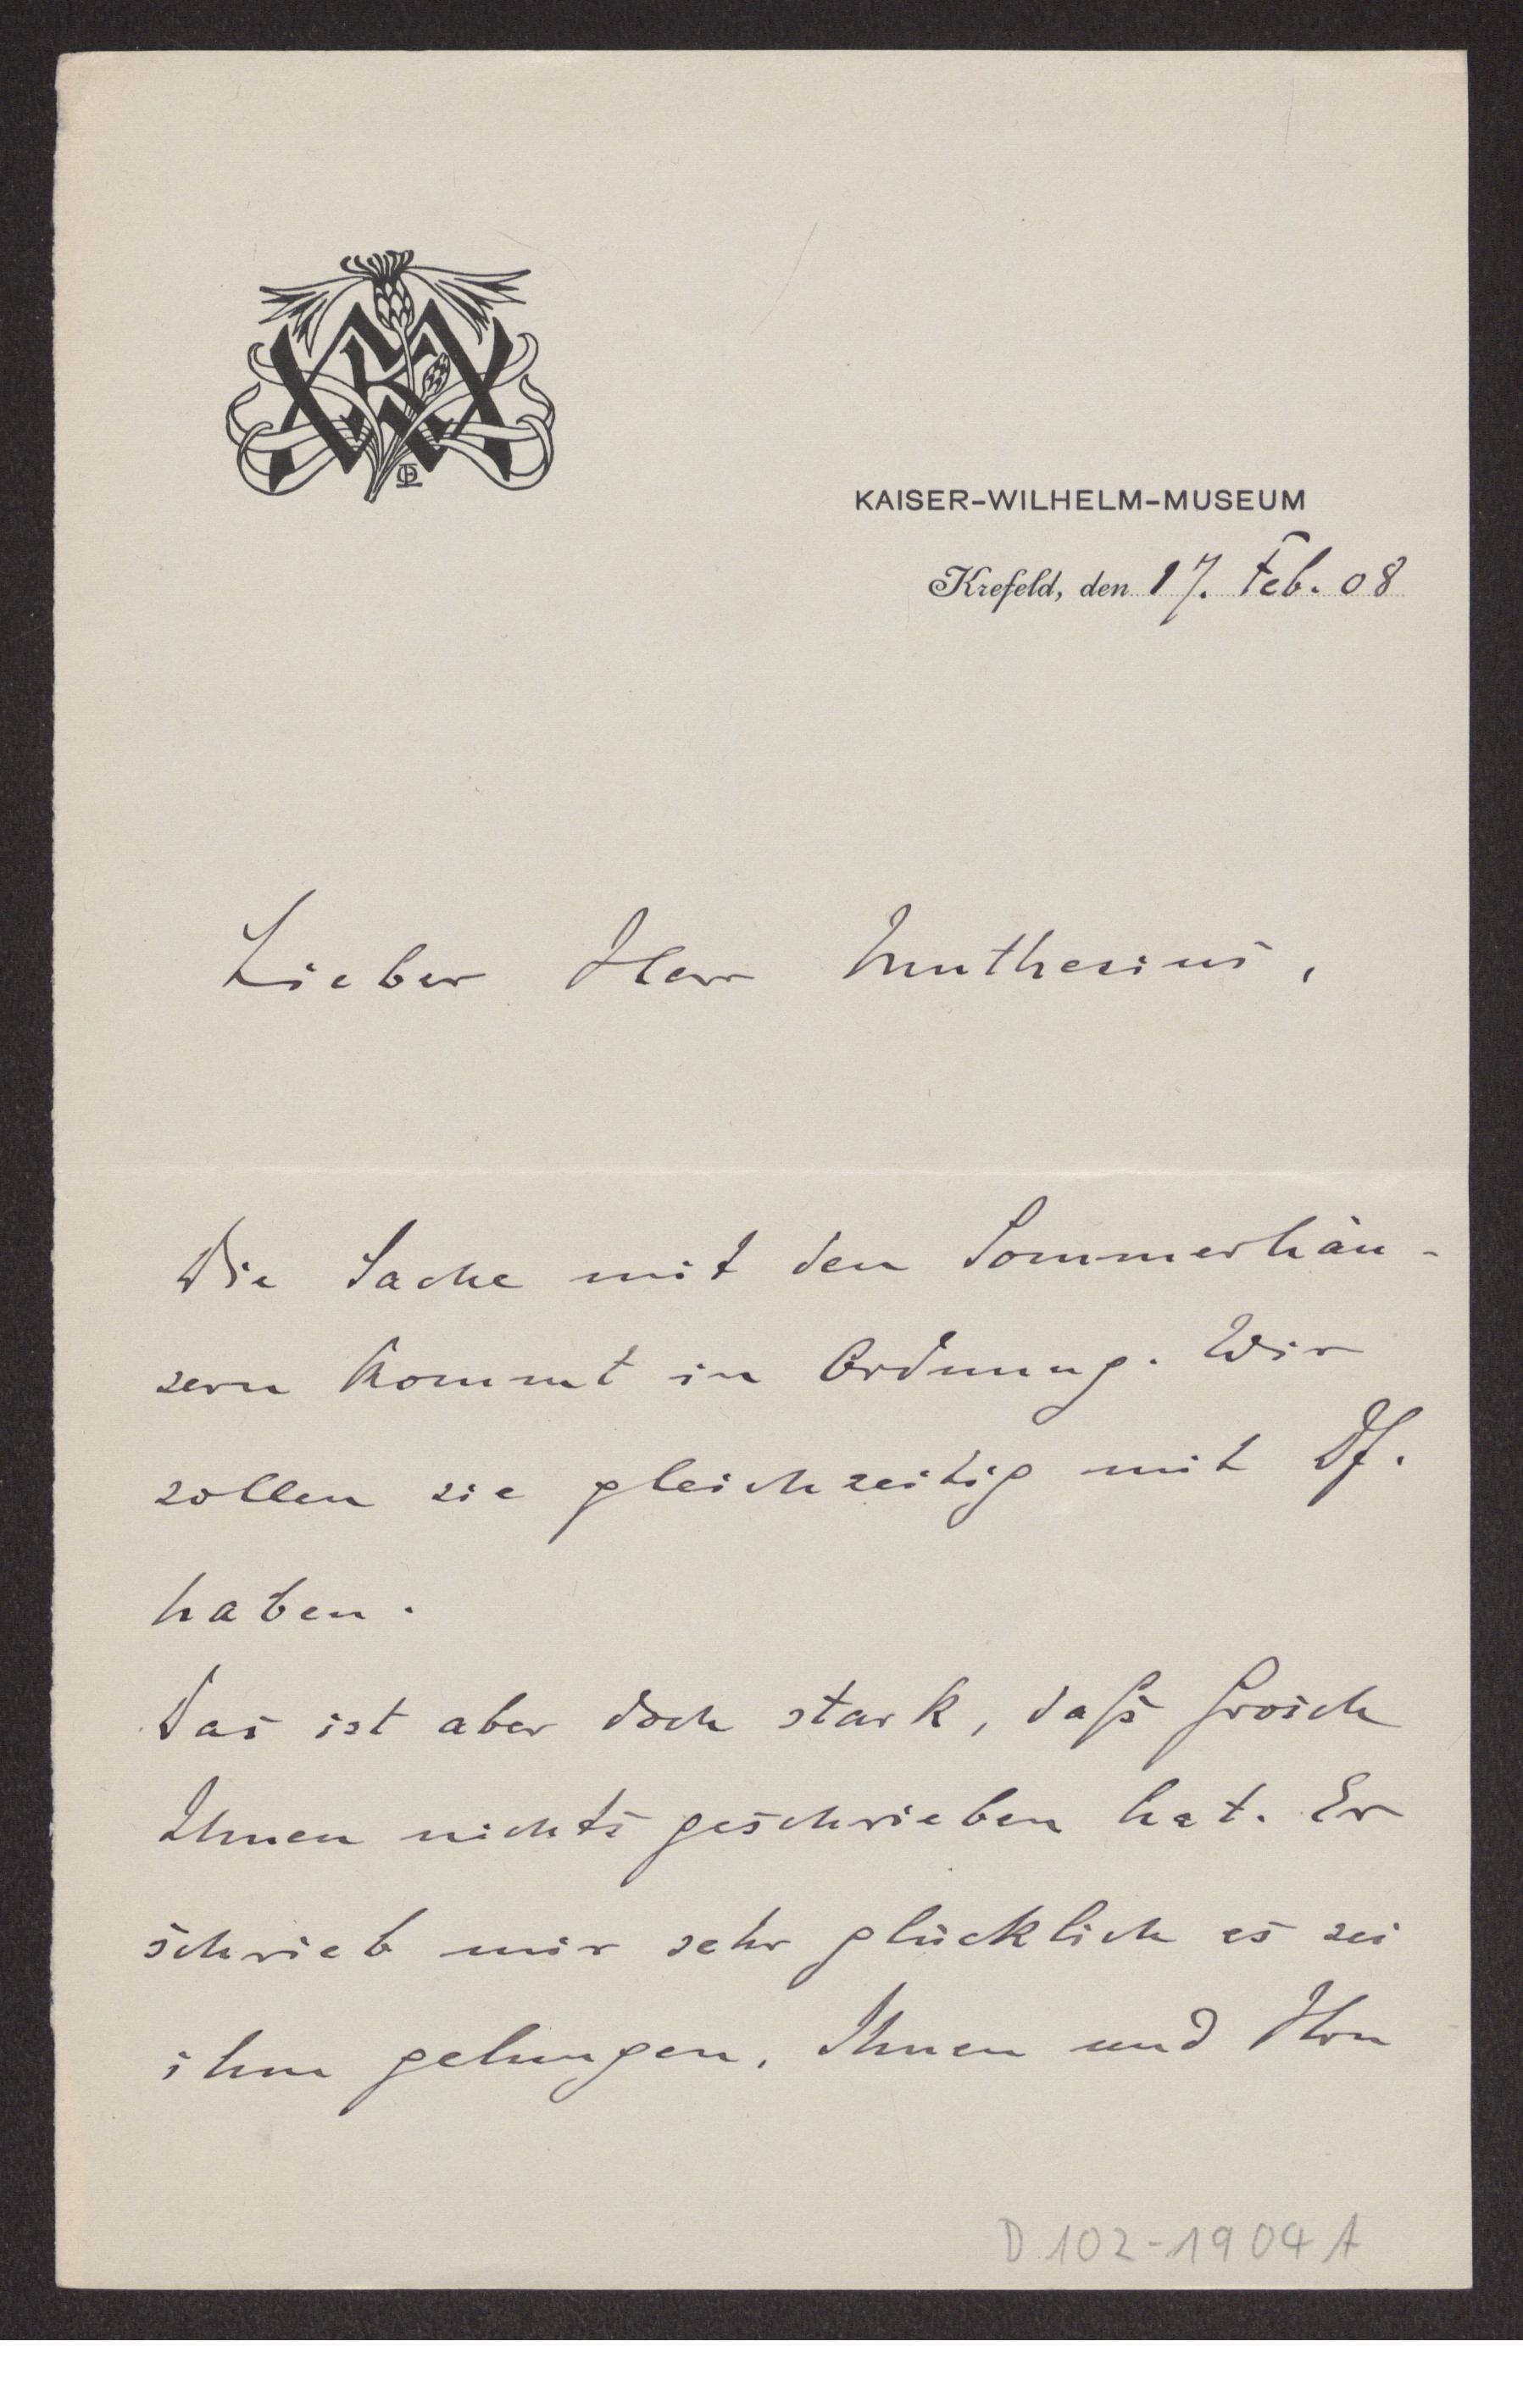 KAISER-WILHELM-MUSEUM
Krefeld, den 17. Feb. 08
Lieber Herr Muthesius,
Die Sache mit den Sommerhäu-
sern kommt in Ordnung. Wir
sollen sie gleichzeitig mit Df.
haben.
Das ist aber doch stark, daſs Grosch
Ihnen nichts geschrieben hat. Er
schrieb mir sehr glücklich es sei
ihm gelungen, Ihnen und Hrn
D 102-1904 A